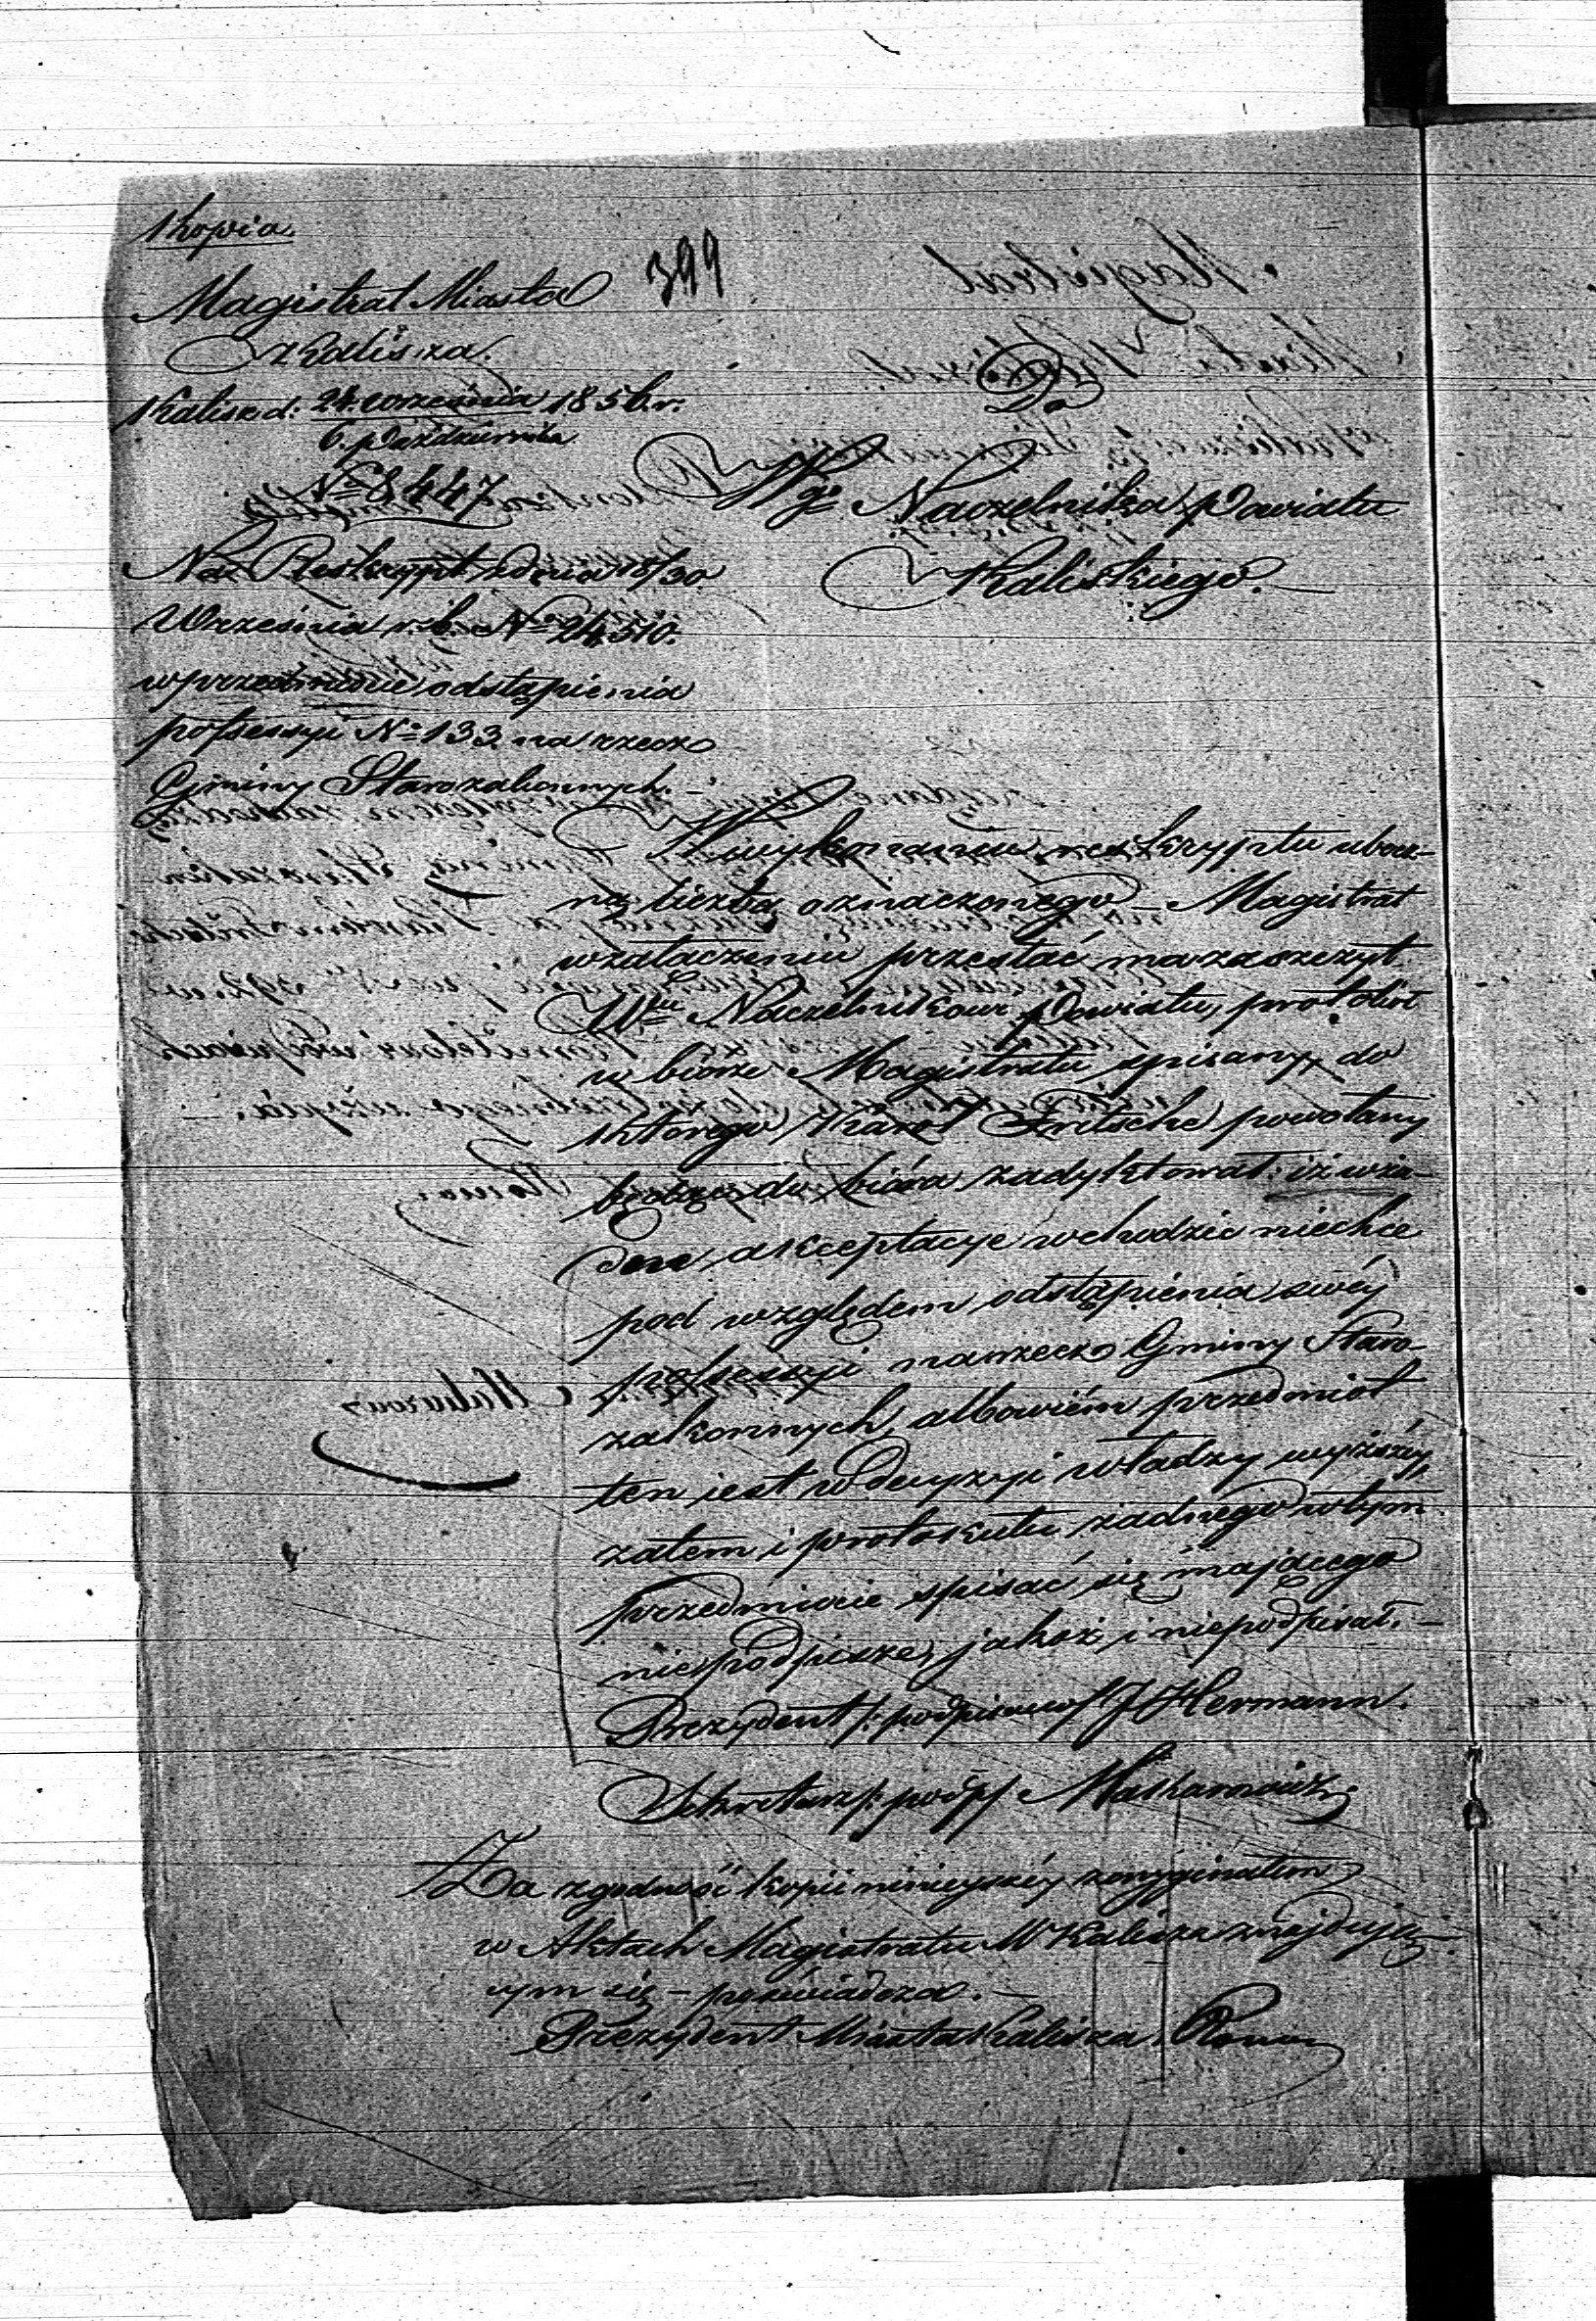 Kopia
399
Magistrat Miasta
Kalisza.
Kalisz d: 24. września 1856. r.
6. października
№ 8,447
Na Reskrypt z dnia 18/30
Września r. b. № 24,510.
w przedmiocie odstąpienia
possessyi № 133 na rzecz
Gminy Starozakonnych.
Do
Wgo Naczelnika Powiatu
Kaliskiego.
W wykonaniu reskryptu ubocz-
ną liczbą oznaczonego – Magistrat
w załączeniu przesłać ma zaszczyt
Wmu Naczelnikowi Powiatu, protokół
w biórze Magistratu spisany, do
którego Karol Fritsche powołany
będąc do bióra zadyktował: iż w żą-
dne akceptacye wchodzić niechce
pod względem odstąpienia swéy
possessyi na rzecz Gminy Staro-
zakonnych, albowiém przedmiot
ten iest w decyzyi władzy wyższéy,
zatem i protokułu żadnego w tym
przedmiocie spisać się mającego
niepodpisze, jakoż i niepodpisał. –
Prezydent /: podpisano / J Hermann.
Sekretarz /: podp /
Za zgodność kopii ninieyszéy z oryginałem
w Aktach Magistratu M Kalisza znajdują-
cym się – poświadcza. –
Prezydent Miasta Kalisza